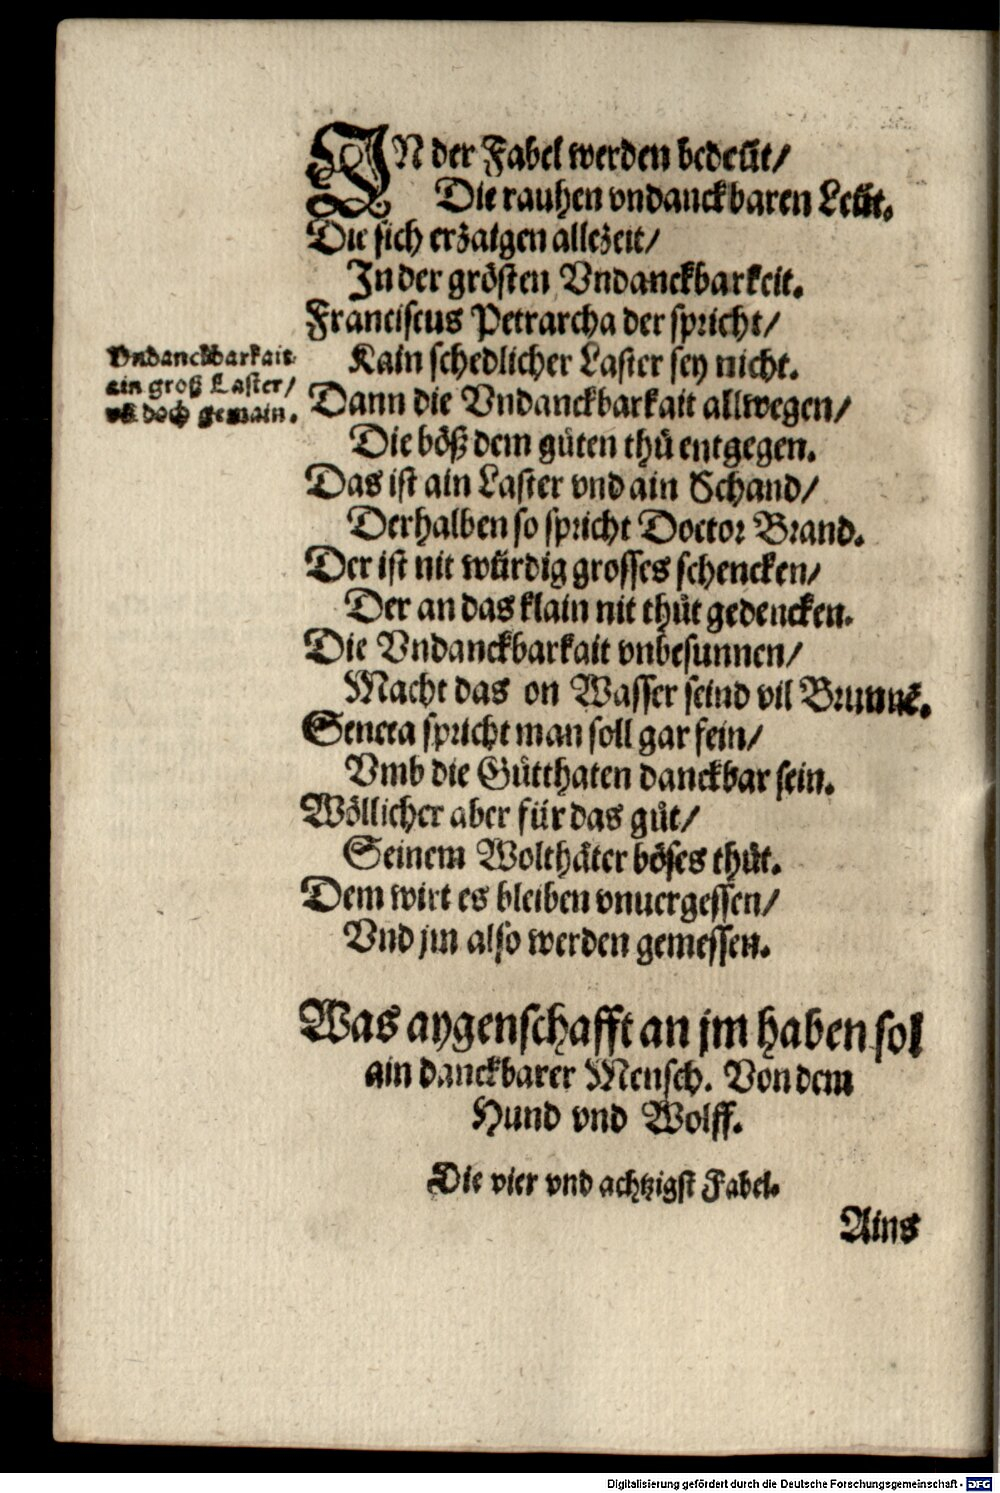 IN der Fabel werden bedeüt/
Die rauhen vndanckbaren Leüt.
Die sich erzaigen allezeit/
In der grösten Vndanckbarkeit.
Franciscus Petrarcha der spricht/
Kain schedlicher Laster sey nicht.
Vndanckbarkait
ain groß Laster/
vñ doch gemain.
Dann die Vndanckbarkait allwegen/
Die böß dem gůten thů entgegen.
Das ist ain Laster vnd ain Schand/
Derhalben so spricht Doctor Brand.
Der ist nit würdig grosses schencken/
Der an das klain nit thůt gedencken.
Die Vndanckbarkait vnbesunnen/
Macht das on Wasser seind vil Brunnẽ.
Seneca spricht man soll gar fein/
Vmb die Gůtthaten danckbar sein.
Wöllicher aber für das gůt/
Seinem Wolthäter böses thůt.
Dem wirt es bleiben vnuergessen/
Vnd jm also werden gemessen.
Was aygenschafft an jm haben sol
ain danckbarer Mensch. Von dem
Hund vnd Wolff.
Die vier vnd achtzigst Fabel.
Ains
Digitalisierung gefördert durch die Deutsche Forschungsgemeinschaft - DFG